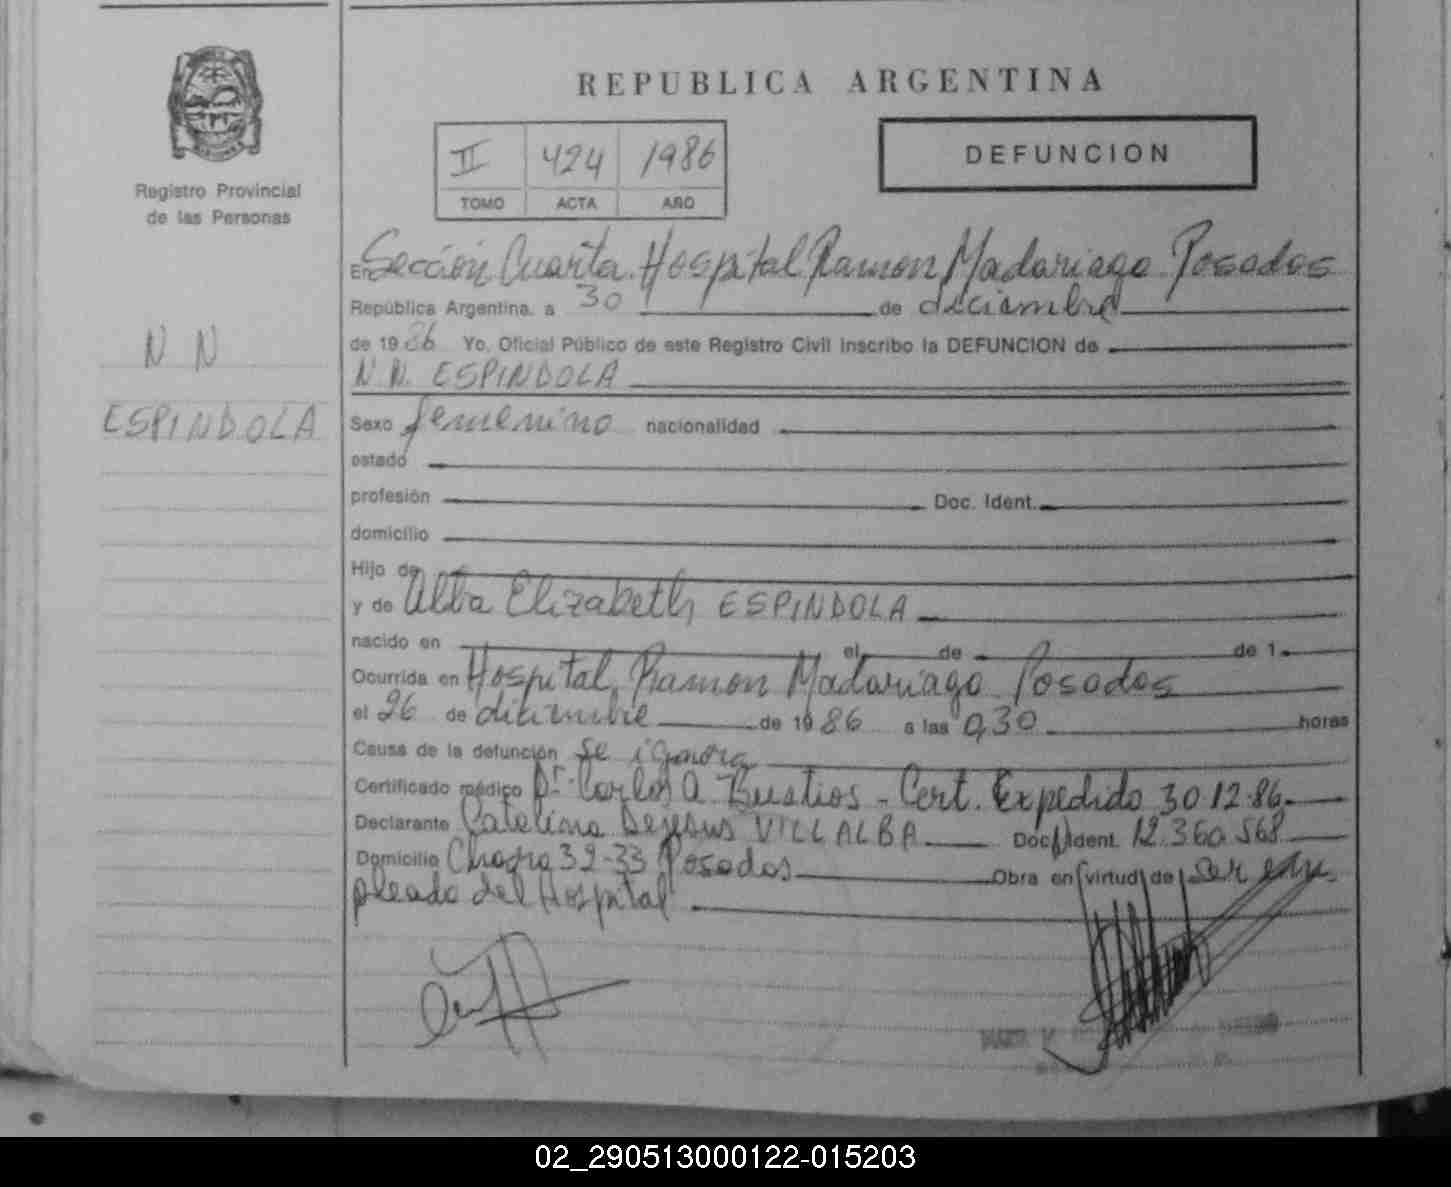 REPUBLICA ARGENTINA
II 424 1986
TOMO ACTA AÑO
DEFUNCION
Registro Provincial
de las Personas
N N
ESPINDOLA
En Sección Cuarta. Hospital Ramon Madariaga Posadas
República Argentina, a 30 de diciembre
de 1986 Yo, Oficial Público de este Registro Civil Inscribo la DEFUNCION de
N.N. ESPINDOLA
Sexo femenino nacionalidad
estado
profesión Doc. Ident.
domicilio
Hijo de
y de Alba Elizabeth ESPINDOLA
nacido en el de de 1
Ocurrida en Hospital Ramon Madariaga Posadas
el 26 de diciembre de 1986 a las 0,30 horas
Causa de la defunción se ignora
Certificado médico Dr. Carlos A. Bustios - Cert. Expedido 30.12.86
Declarante Catalina Dejesus VILLALBA Doc. Ident. 12.360.568
Domicilio Chacra 32-33 Posadas Obra en virtud de ser em
pleado del Hospital
02_290513000122-015203